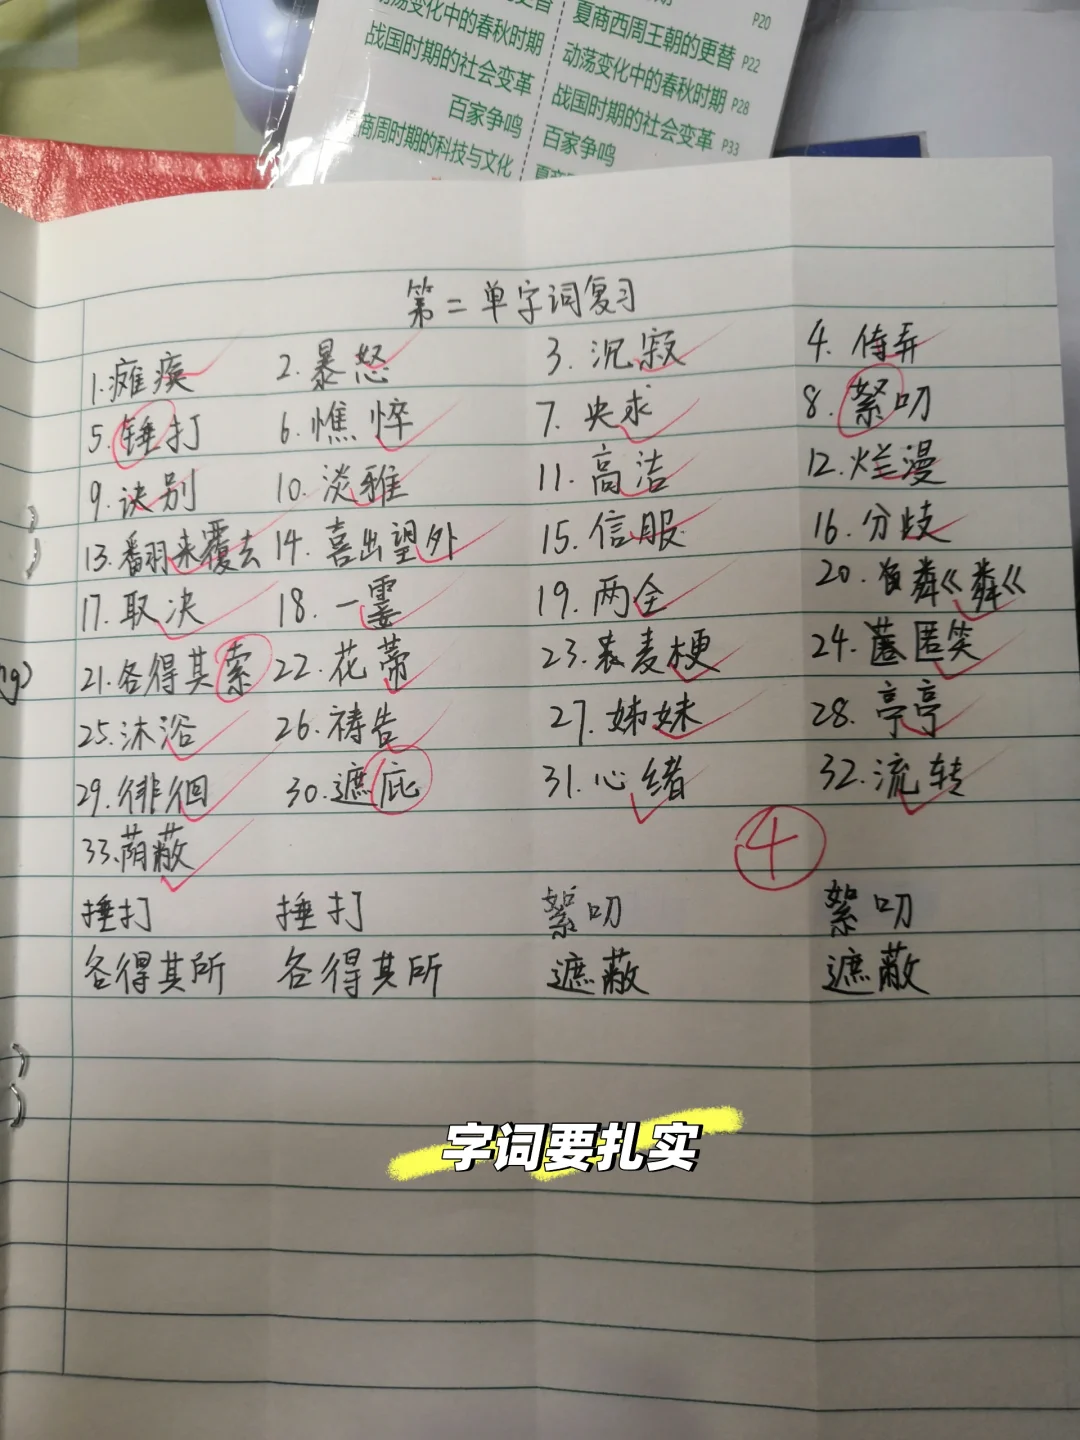 的更替
动荡变化中的春秋时期
战国时期的社会变革
百家争鸣
商周时期的科技与文化
P20
夏商西周王朝的更替 P22
动荡变化中的春秋时期 P28
战国时期的社会变革 P33
百家争鸣
第二单字词复习
1.瘫痪 2.暴怒 3.沉寂 4.侍弄
5.锤打 6.憔悴 7.央求 8.絮叨
9.诀别 10.淡雅 11.高洁 12.烂漫
13.翻来覆去 14.喜出望外 15.信服 16.分歧
17.取决 18.一霎 19.两全 20.
21.各得其索 22.花蒂 23.装麦梗 24.匿笑
25.沐浴 26.祷告 27.姊妹 28.亭亭
29.徘徊 30.遮庇 31.心绪 32.流转
33.荫蔽
4
捶打 捶打 絮叨 絮叨
各得其所 各得其所 遮蔽 遮蔽
字词要扎实